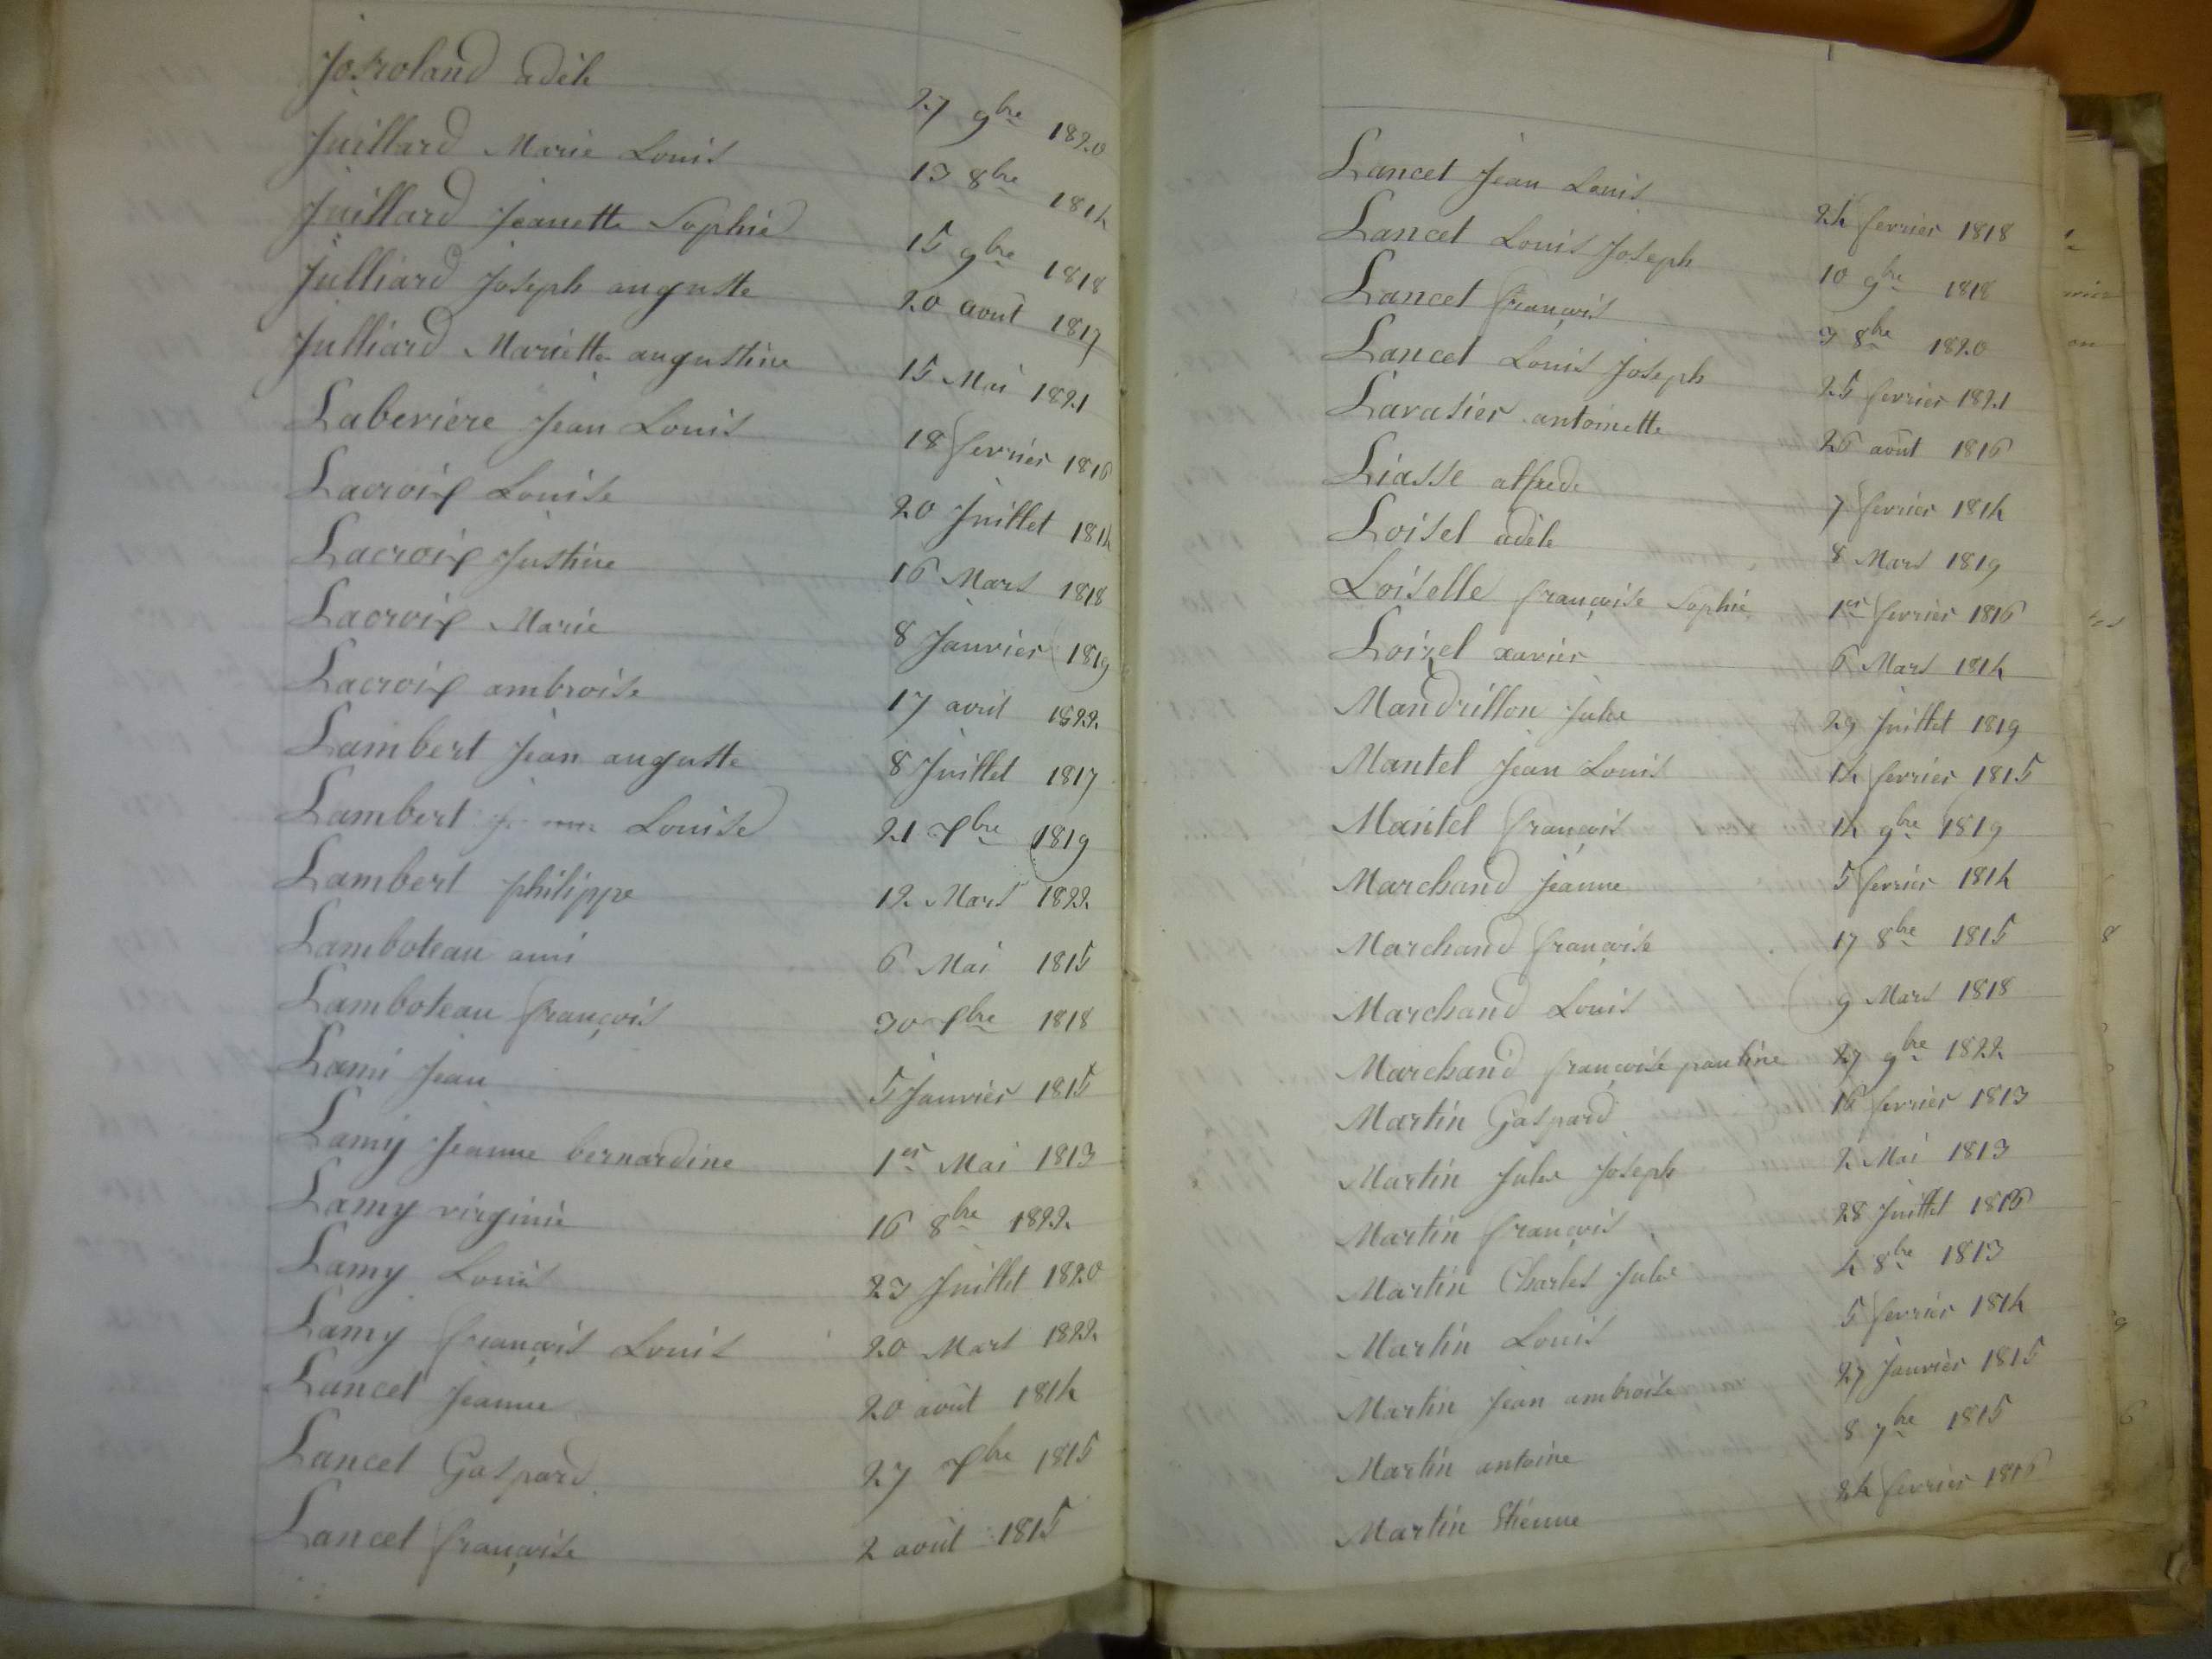 Josroland adèle 27 9bre 1820
Juillard Marie Louis 13 8bre 1814
Juillard Jeanette Sophie 15 9bre 1818
Julliard Joseph auguste 20 août 1817
Julliard Mariette augustine 15 Mai 1821
Laberiere Jean Louis 18 fevrier 1816
Lacroix Louise 20 Juillet 1814
Lacroix Justine 16 Mars 1818
Lacroix Marie 8 Janvier 1819
Lacroix ambroise 17 avril 1822
Lambert Jean auguste 8 Juillet 1817
Lambert Louise 21 7bre 1819
Lambert philippe 12 Mars 1822
Lamboteau ami 6 Mai 1815
Lamboteau françois 30 7bre 1818
Lami Jean 5 Janvier 1815
Lamy Jeanne bernardine 1er Mai 1813
Lamy virginie 16 8bre 1822
Lamy Louis 23 Juillet 1820
Lamy françois Louis 20 Mars 1822
Lancet Jeanne 20 août 1814
Lancet Gaspard 27 7bre 1815
Lancet françoise 2 août 1815
Lancet Jean Louis 24 fevrier 1818
Lancet Louis Joseph 10 9bre 1818
Lancet françois 3 8bre 1820
Lancet Louis Joseph 25 fevrier 1821
Lavasier antoinette 26 août 1816
Liasse alfred 7 fevrier 1814
Loisel adèle 8 Mars 1819
Loiselle françoise Sophie 1er fevrier 1816
Loizel xavier 6 Mars 1814
Mandrillon Jules 29 Juillet 1819
Mantel Jean Louis 14 fevrier 1815
Mantel françois 14 9bre 1819
Marchand Jeanne 5 fevrier 1814
Marchand françoise 17 8bre 1815
Marchand Louis 9 Mars 1818
Marchand françoise pauline 27 9bre 1822
Martin Gaspard 16 fevrier 1813
Martin Jules Joseph 2 Mai 1813
Martin françois 28 Juillet 1816
Martin Charles Jules 4 8bre 1813
Martin Louis 5 fevrier 1814
Martin Jean ambroise 27 Janvier 1815
Martin antoine 8 7bre 1815
Martin Etienne 24 fevrier 1816